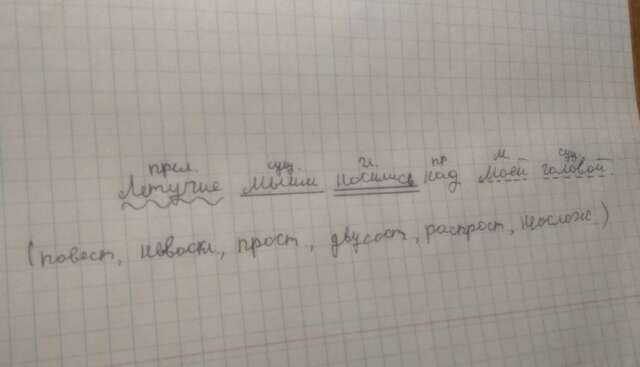 прил. сущ. гл. пр м. сущ
Летучие мыши носились над моей головой.
(повест, невоскл, прост, двусост, распрост, неослож.)